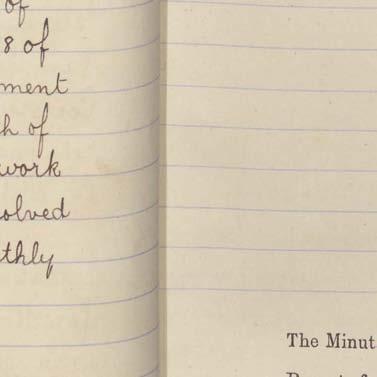 of
8 of
ment
h of
work
olved
thly
The Minut